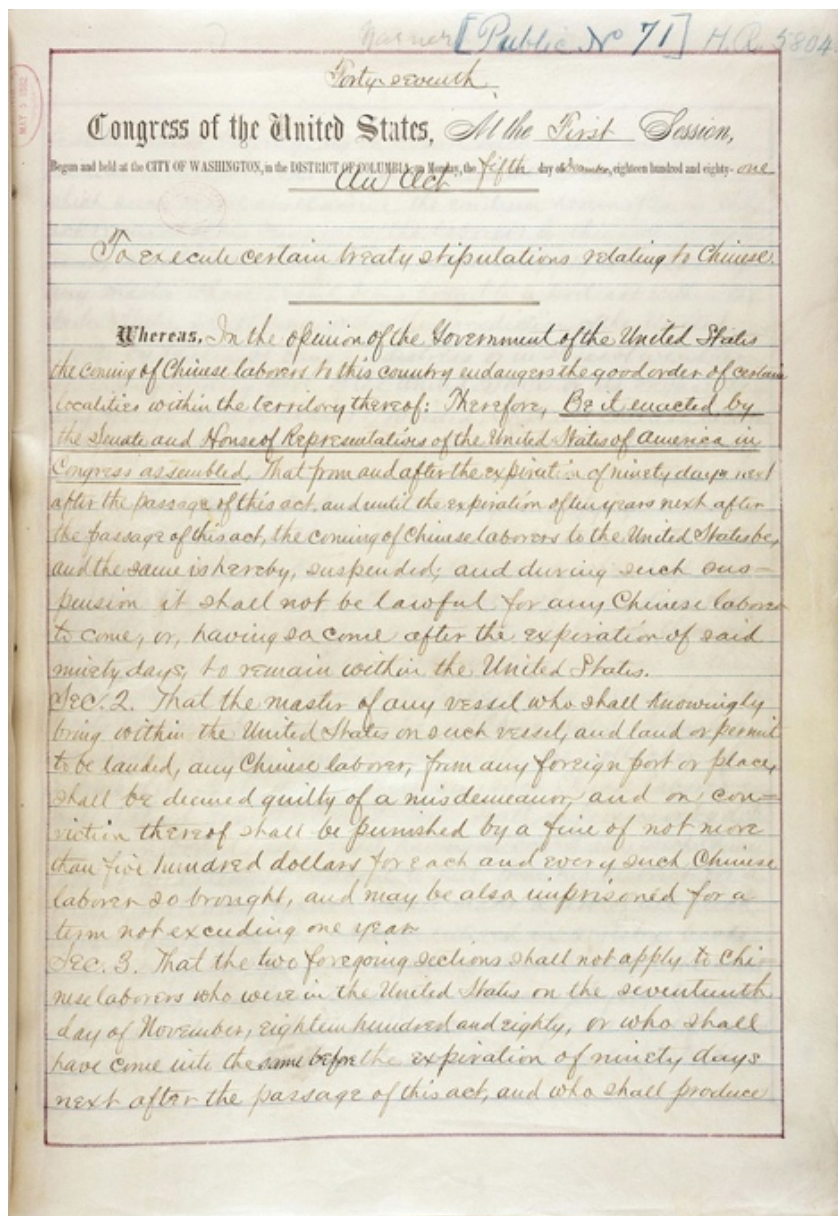 [Public No 71] H.R. 5804.
Forty-seventh
Congress of the United States, At the First Session,
Begun and held at the CITY OF WASHINGTON, in the DISTRICT OF COLUMBIA, on Monday, the fifth day of December, eighteen hundred and eighty-one
An Act
To execute certain treaty stipulations relating to Chinese.
Whereas, In the opinion of the Government of the United States
the coming of Chinese laborers to this country endangers the good order of certain
localities within the territory thereof: Therefore, Be it enacted by
the Senate and House of Representatives of the United States of America in
Congress assembled, That from and after the expiration of ninety days next
after the passage of this act, and until the expiration of ten years next after
the passage of this act, the coming of Chinese laborers to the United States be,
and the same is hereby, suspended; and during such sus-
pension it shall not be lawful for any Chinese laborer
to come, or, having so come after the expiration of said
ninety days, to remain within the United States.
SEC. 2. That the master of any vessel who shall knowingly
bring within the United States on such vessel, and land or permit
to be landed, any Chinese laborer, from any foreign port or place,
shall be deemed guilty of a misdemeanor, and on con-
viction thereof shall be punished by a fine of not more
than five hundred dollars for each and every such Chinese
laborer so brought, and may be also imprisoned for a
term not exceeding one year.
SEC. 3. That the two foregoing sections shall not apply to Chi-
nese laborers who were in the United States on the seventeenth
day of November, eighteen hundred and eighty, or who shall
have come into the same before the expiration of ninety days
next after the passage of this act, and who shall produce